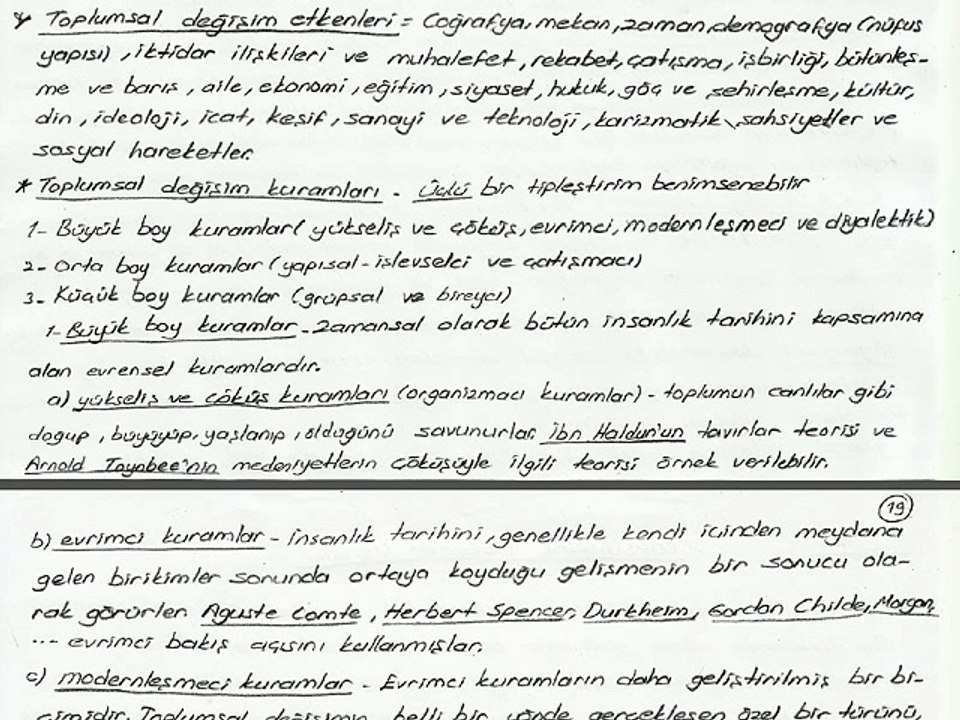 * Toplumsal değişim etkenleri = Coğrafya, mekan, zaman, demografya (nüfus
yapısı), iktidar ilişkileri ve muhalefet, rekabet, çatışma, işbirliği, bütünleş-
me ve barış, aile, ekonomi, eğitim, siyaset, hukuk, göç ve şehirleşme, kültür,
din, ideoloji, icat, keşif, sanayi ve teknoloji, karizmatik şahsiyetler ve
sosyal hareketler.
* Toplumsal değişim kuramları - Üçlü bir tipleştirim benimsenebilir
1- Büyük boy kuramlar( yükseliş ve çöküş, evrimci, modernleşmeci ve diyalektik)
2- Orta boy kuramlar (yapısal-işlevselci ve çatışmacı)
3- Küçük boy kuramlar (grupsal ve bireyci)
1- Büyük boy kuramlar - Zamansal olarak bütün insanlık tarihini kapsamına
alan evrensel kuramlardır.
a) yükseliş ve çöküş kuramları (organizmacı kuramlar) - toplumun canlılar gibi
dogup, büyüyüp, yaşlanıp, öldüğünü savunurlar. İbn Haldun'un tavırlar teorisi ve
Arnold Toynbee'nin medeniyetlerin çöküşüyle ilgili teorisi örnek verilebilir.
19
b) evrimci kuramlar - insanlık tarihini, genellikle kendi içinden meydana
gelen birikimler sonunda ortaya koyduğu gelişmenin bir sonucu ola-
rak görürler Aguste Comte, Herbert Spencer, Durkheim, Gordon Childe, Morgan,
... evrimci bakış açısını kullanmışlar.
c) modernleşmeci kuramlar - Evrimci kuramların daha geliştirilmiş bir bi-
çimidir. Toplumsal değişimin belli bir yönde gerçekleşen özel bir türünü,